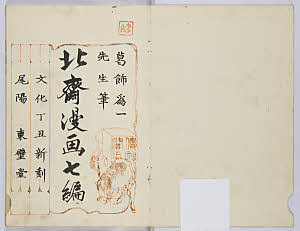 葛飾為一
先生筆
北齋漫画七編
文化丁丑新刻
尾陽　東璧堂